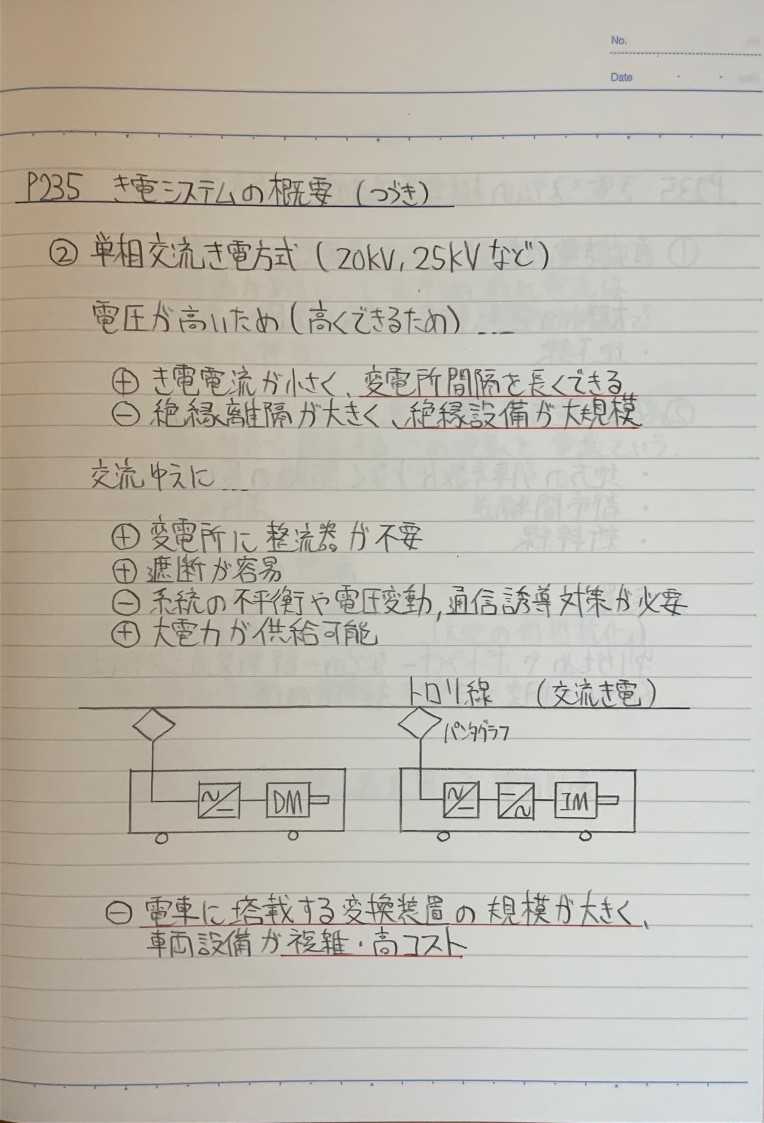 No.
Date
P235 き電システムの概要 (つづき)
② 単相交流き電方式 (20kV, 25kVなど)
電圧が高いため (高くできるため) ...
⊕ き電電流が小さく、変電所間隔を長くできる
⊖ 絶縁離隔が大きく、絶縁設備が大規模
交流ゆえに ...
⊕ 変電所に整流器が不要
⊕ 遮断が容易
⊖ 系統の不平衡や電圧変動, 通信誘導対策が必要
⊕ 大電力が供給可能
トロリ線 (交流き電)
パンタグラフ
DM
IM
⊖ 電車に搭載する変換装置の規模が大きく、
車両設備が複雑・高コスト